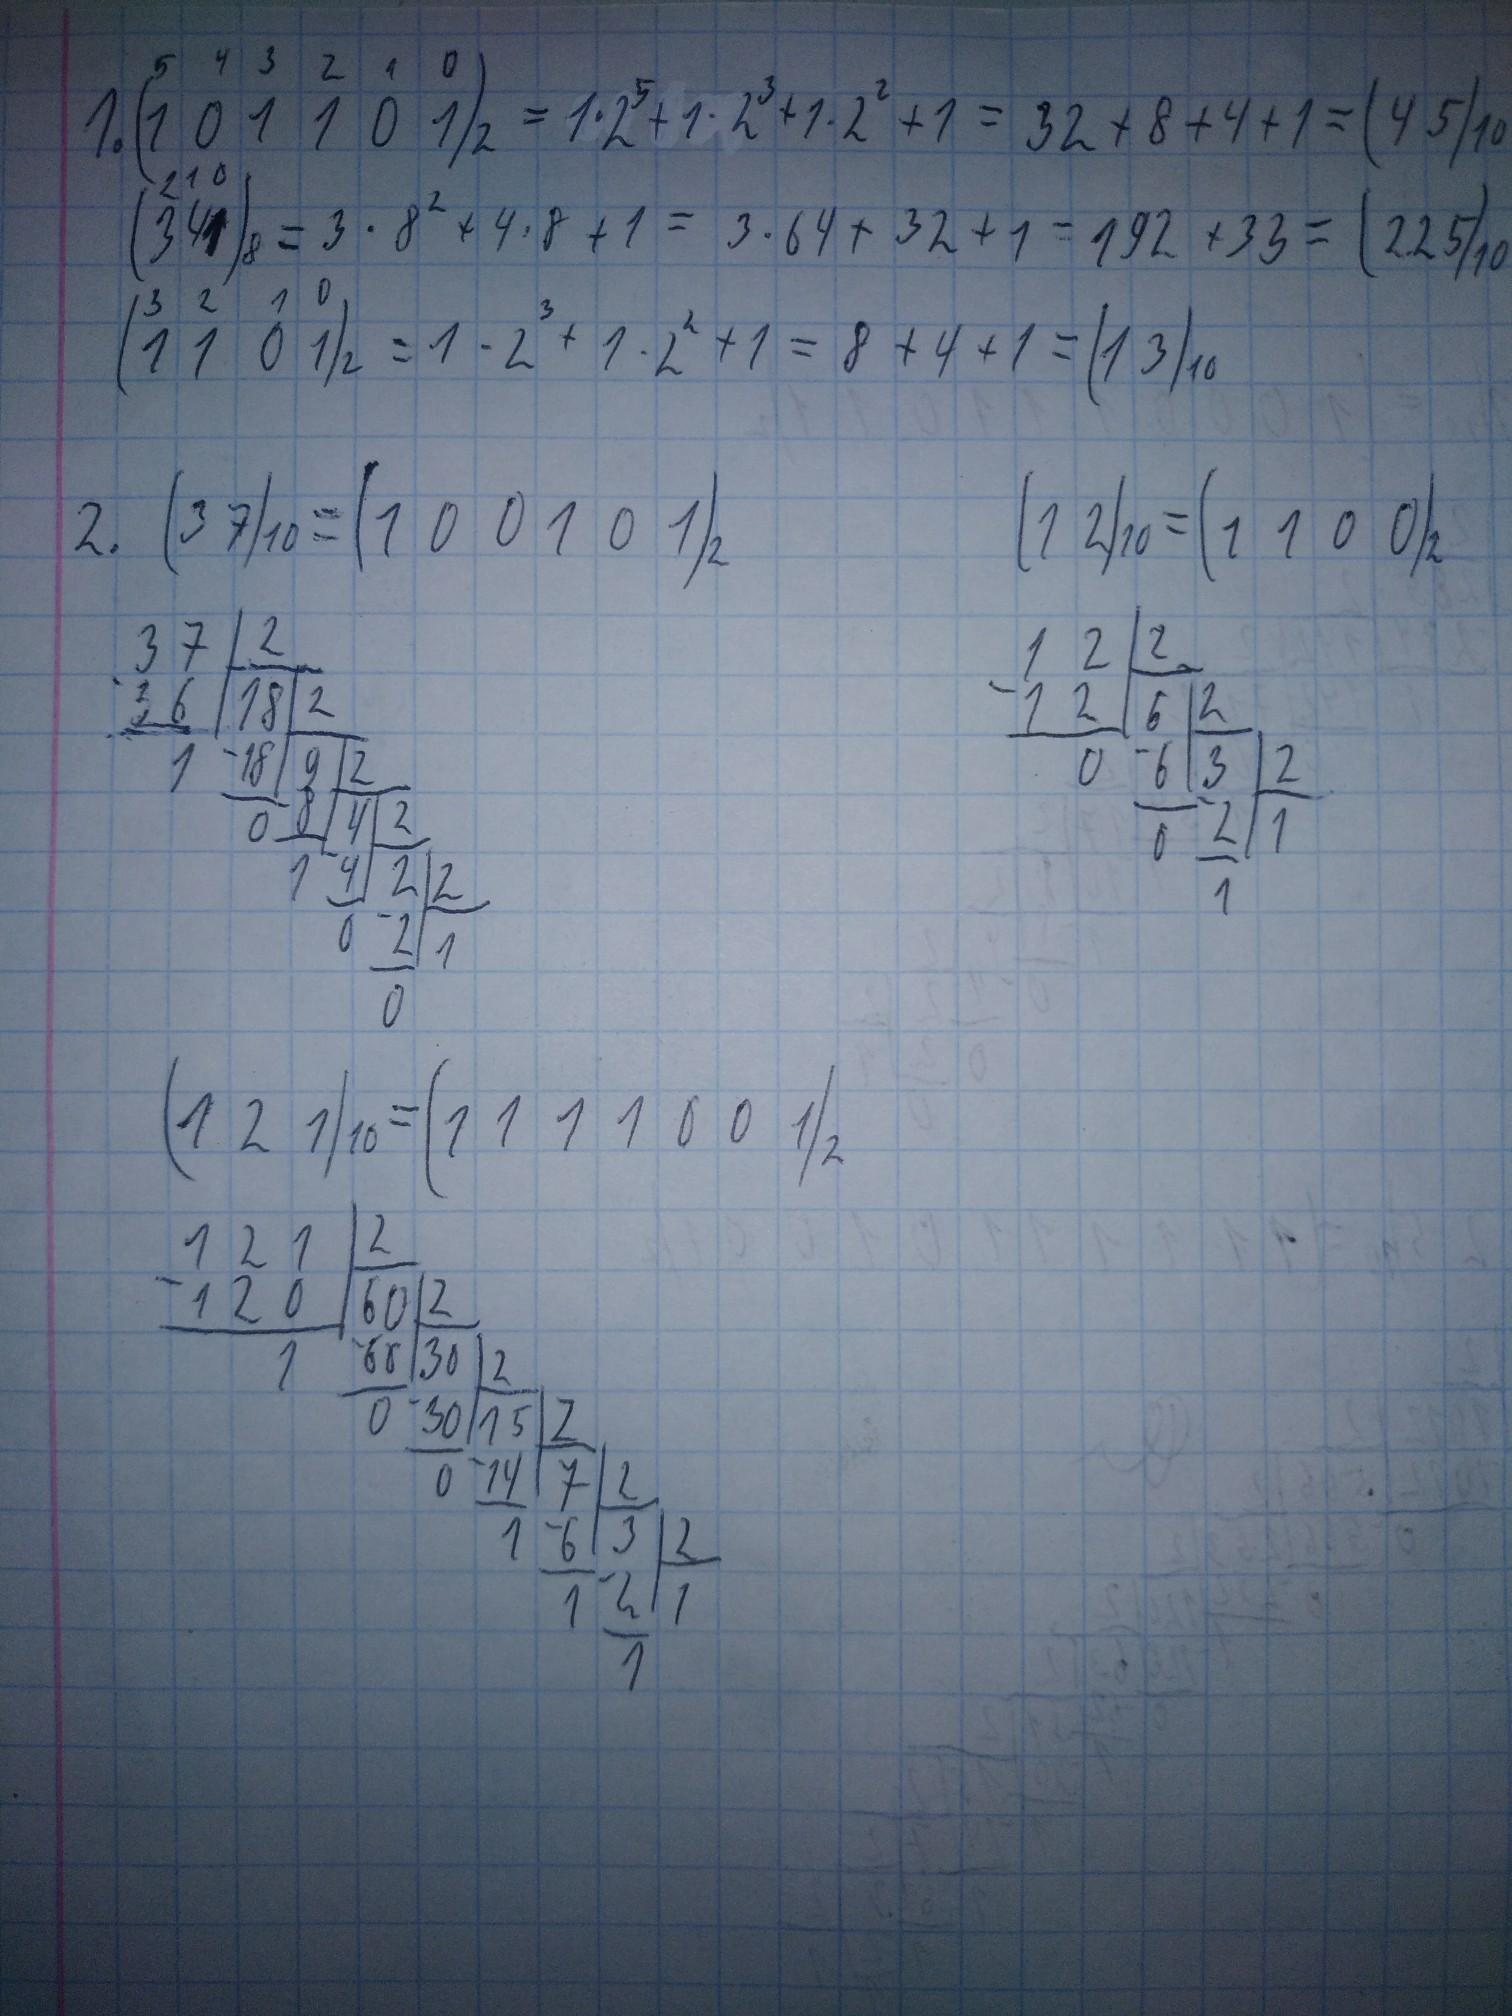 5 4 3 2 1 0
1. (1 0 1 1 0 1)₂ = 1·2⁵+1·2³+1·2²+1 = 32+8+4+1=(45)₁₀
2 1 0
(341)₈ = 3·8²+4·8+1 = 3·64+32+1=192+33=(225)₁₀
3 2 1 0
(1 1 0 1)₂ = 1·2³+1·2²+1=8+4+1=(13)₁₀
2. (37)₁₀=(1 0 0 1 0 1)₂ (12)₁₀=(1 1 0 0)₂
37 | 2
-36 | 18 | 2
1 -18 | 9 | 2
0 8 | 4 | 2
1 -4 | 2 | 2
0 -2 | 1
0
12 | 2
-12 | 6 | 2
0 -6 | 3 | 2
0 -2 | 1
1
(1 2 1)₁₀=(1 1 1 1 0 0 1)₂
121 | 2
-120 | 60 | 2
1 -60 | 30 | 2
0 -30 | 15 | 2
0 -14 | 7 | 2
1 -6 | 3 | 2
1 -2 | 1
1